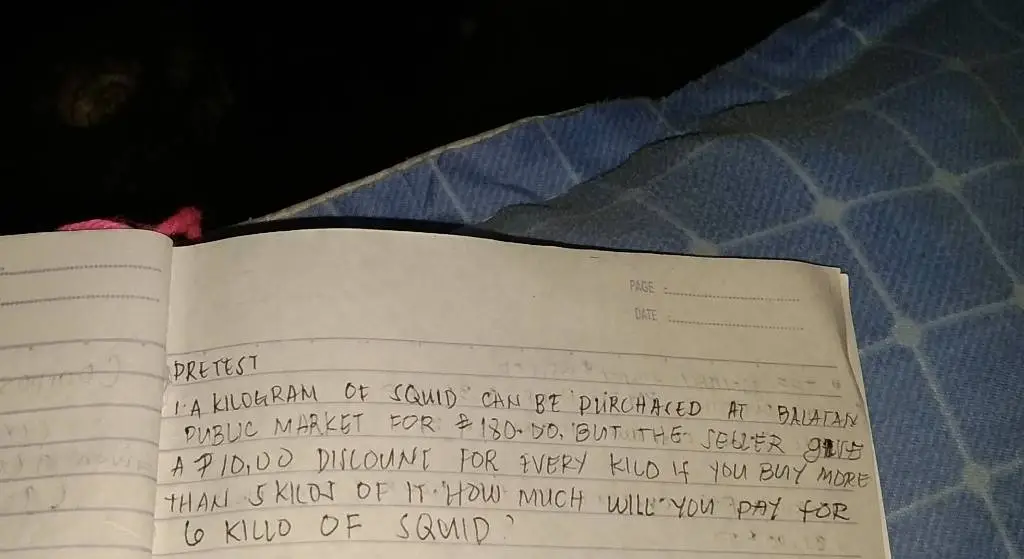 PAGE :
DATE :
PRETEST
1. A KILOGRAM OF SQUID CAN BE PURCHACED AT BALATAN
PUBLIC MARKET FOR ₱180.00, BUT THE SELLER GIVE
A ₱10,00 DISCOUNT FOR EVERY KILO IF YOU BUY MORE
THAN 5 KILOS OF IT. HOW MUCH WILL YOU PAY FOR
6 KILLO OF SQUID?